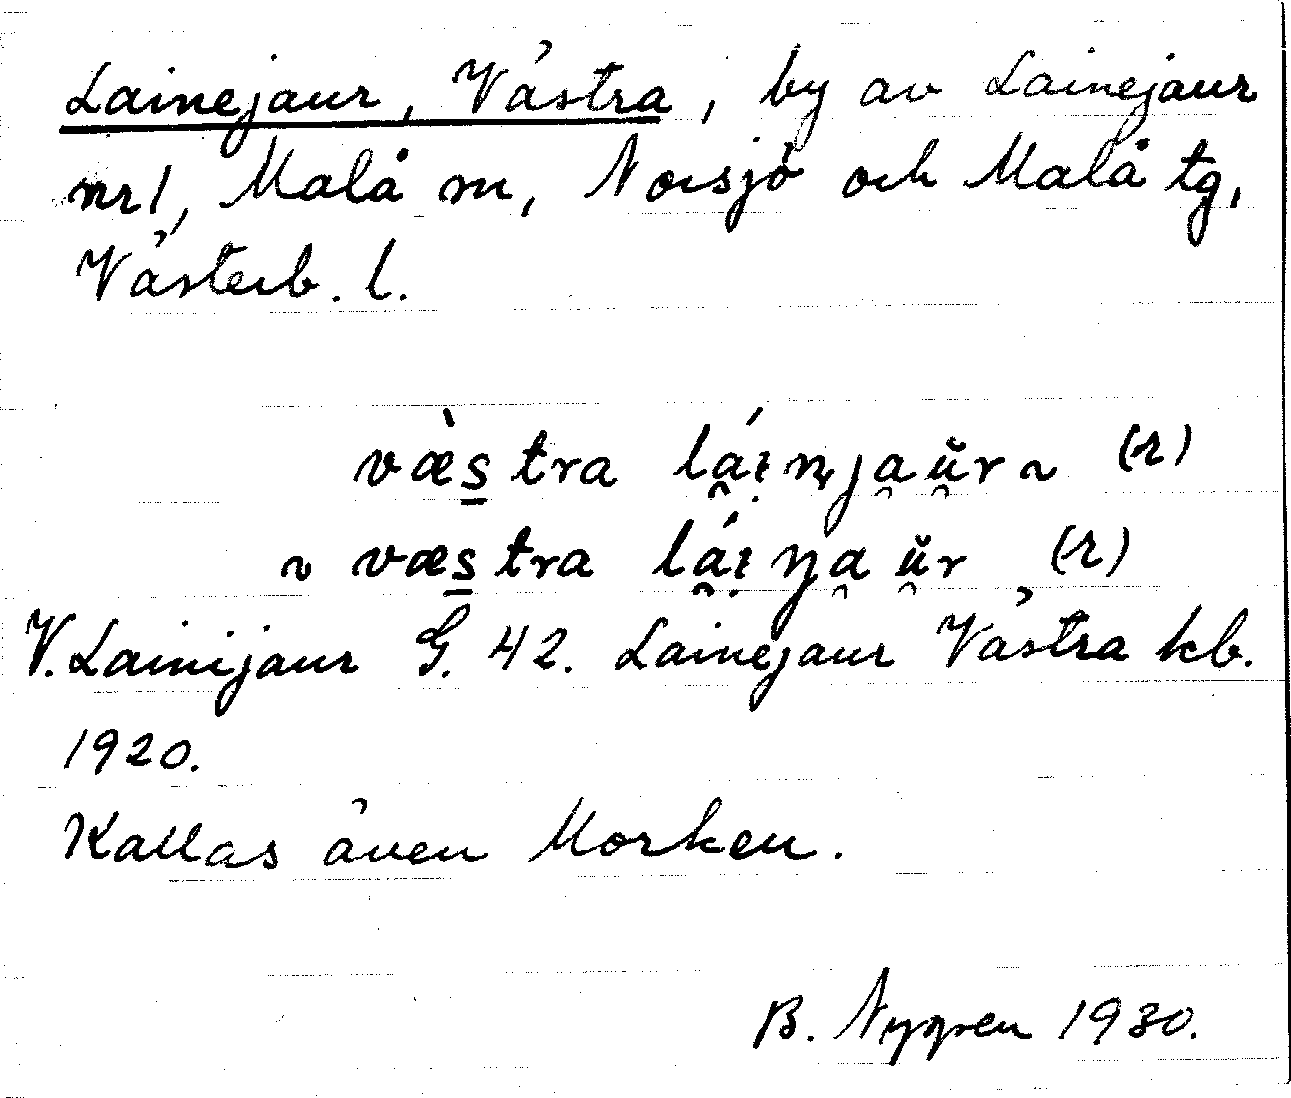 Lainejaur, Västra, by av Lainejaur
nr 1, Malå sn, Norsjö och Malå tg,
Västerb. l.
væ̀s̲tra lá̯ı̣nja̯ŭ̯r ~ (r)
~ væs̲tra lá̯ı̣ŋa̯ŭ̯r (r)
V. Lainijaur G. 42. Lainejaur Västra kb.
1920.
Kallas även Morken.
B. Nygren 1930.